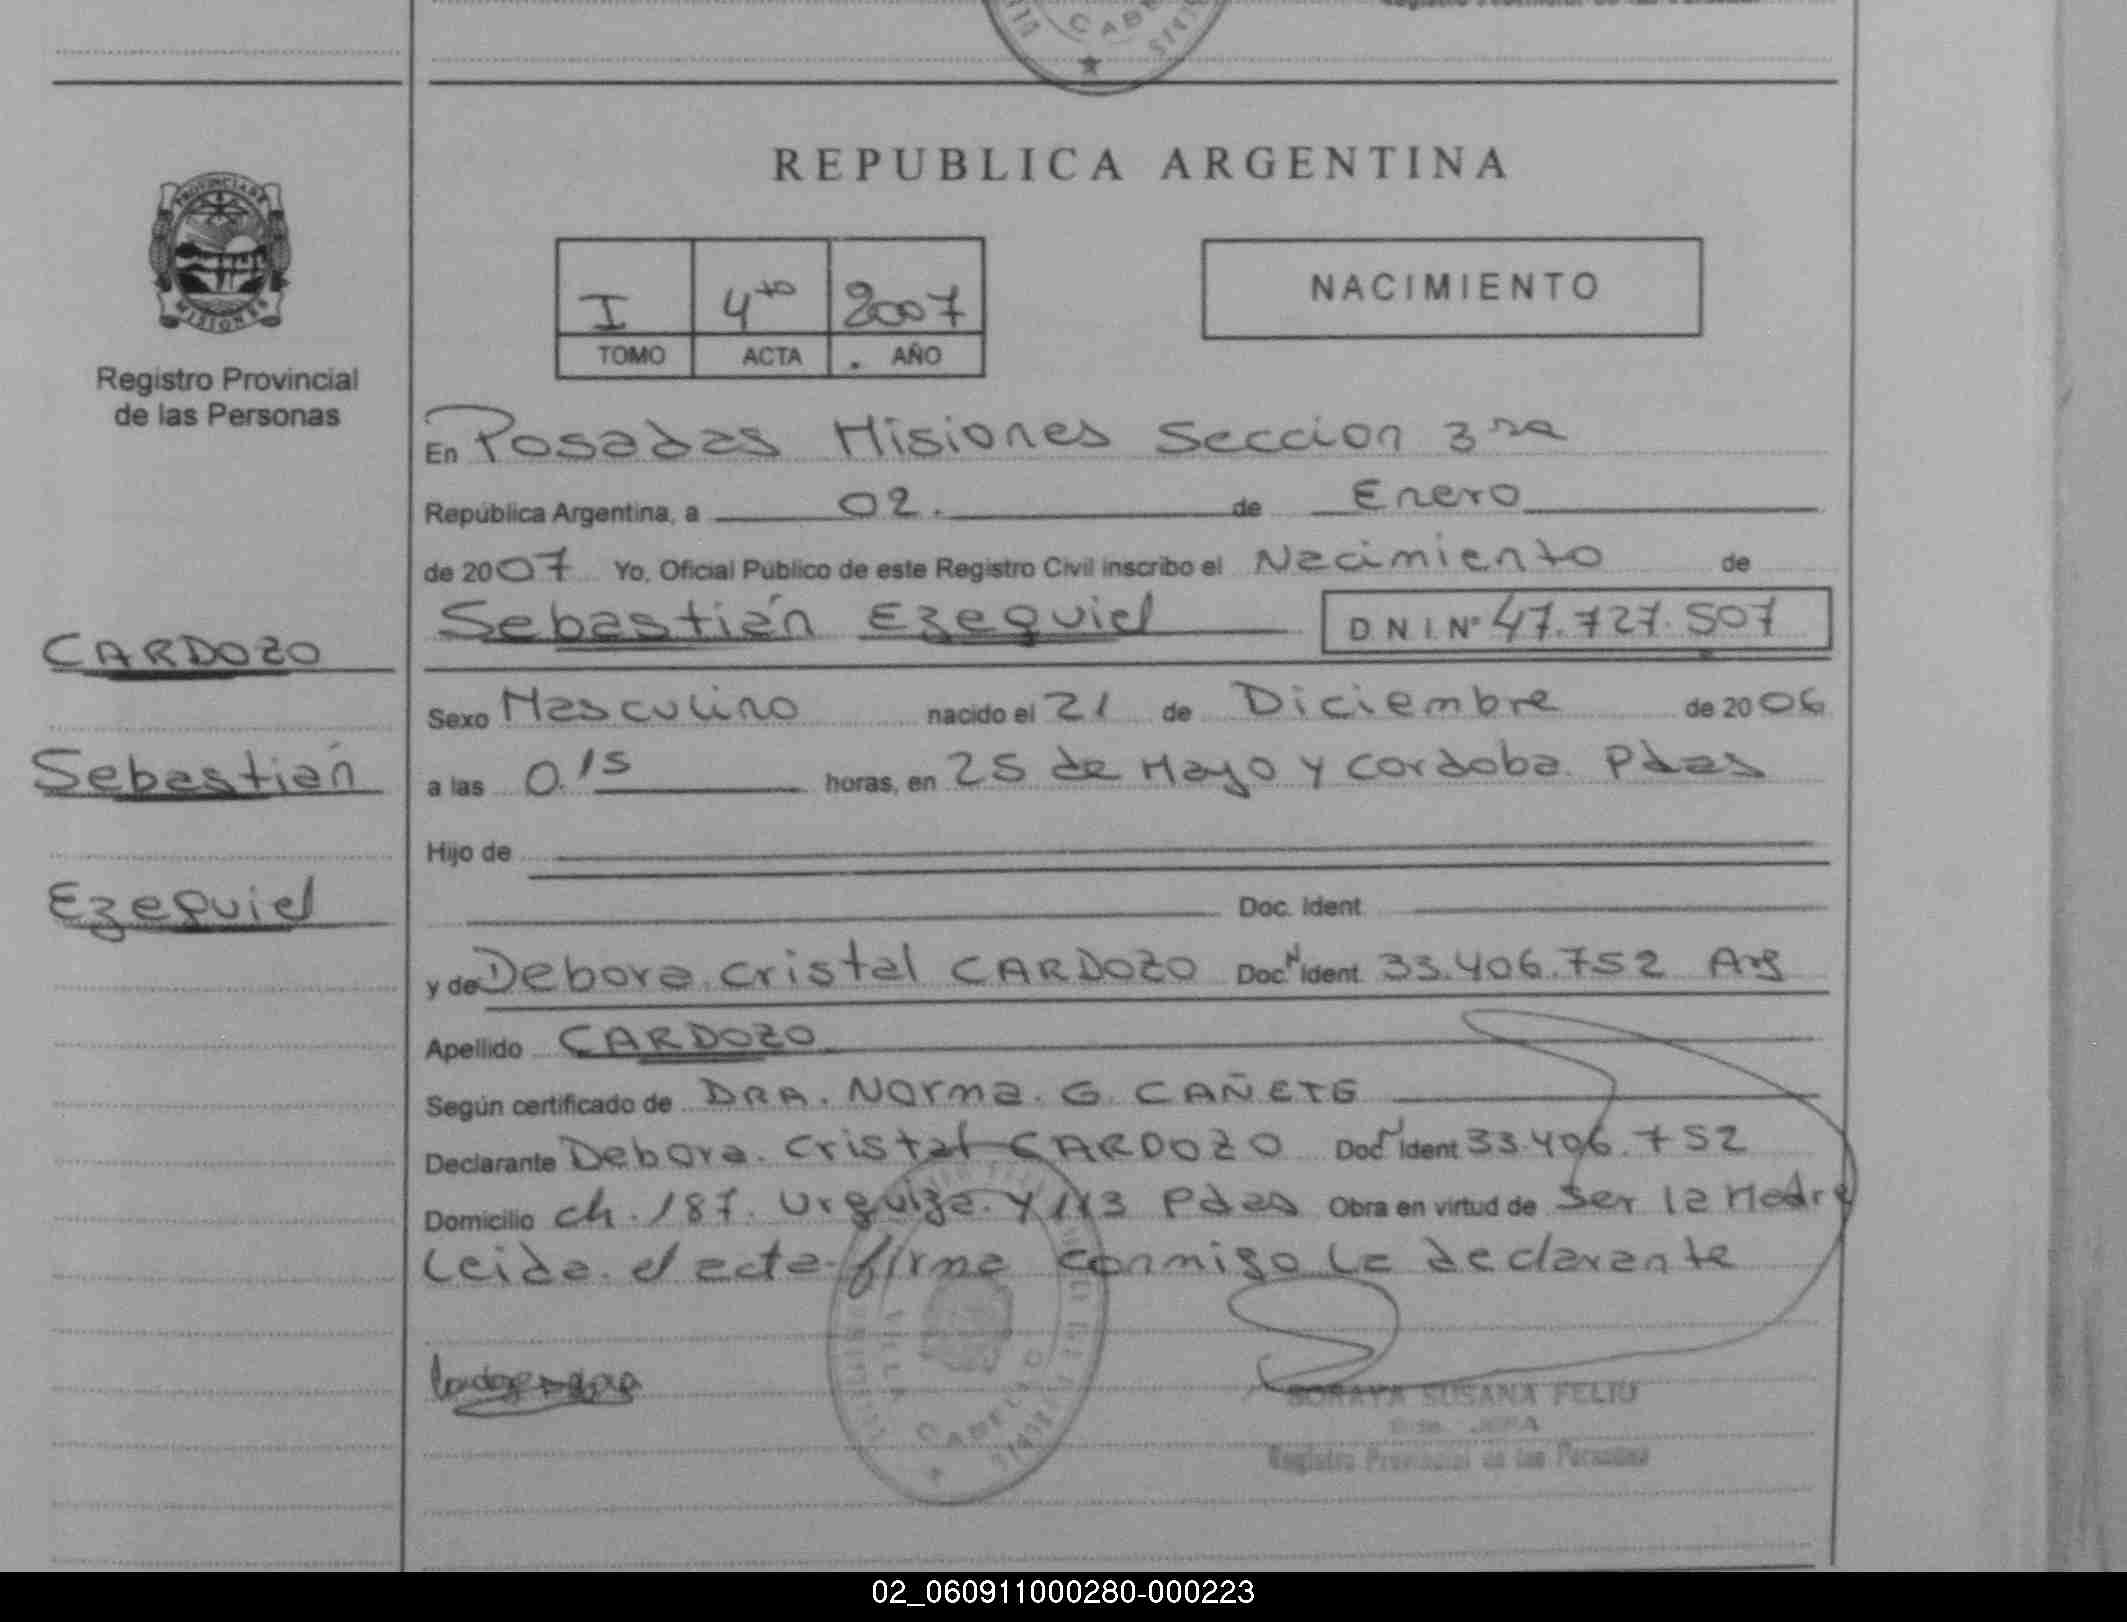 CABE
REPUBLICA ARGENTINA
PROVINCIA DE
MISIONES
Registro Provincial
de las Personas
I 4to 2007
TOMO ACTA AÑO
NACIMIENTO
En Posadas Misiones Seccion 3ra
República Argentina, a 02. de Enero
de 2007 Yo, Oficial Público de este Registro Civil inscribo el Nacimiento de
Sebastián Ezequiel D N I. Nº 47.727.507
CARDOZO
Sexo Masculino nacido el 21 de Diciembre de 2006
Sebastián
a las 0.15 horas, en 25 de Mayo y Cordoba. Pdas
Hijo de
Ezequiel
Doc. Ident
y de Debora. Cristal CARDOZO Doc N Ident 33.406.752 Arg
Apellido CARDOZO
Según certificado de DRA. Norma. G. CAÑETE
Declarante Debora. Cristal CARDOZO Doc N Ident 33.406.752
Domicilio ch. 187. Urquiza. Y 113 Pdas Obra en virtud de Ser la Madre
Leida. el acta. firma conmigo la declarante
VILLA CABELLO
SORAYA SUSANA FELIU
JEFA
Registro Provincial de las Personas
02_060911000280-000223